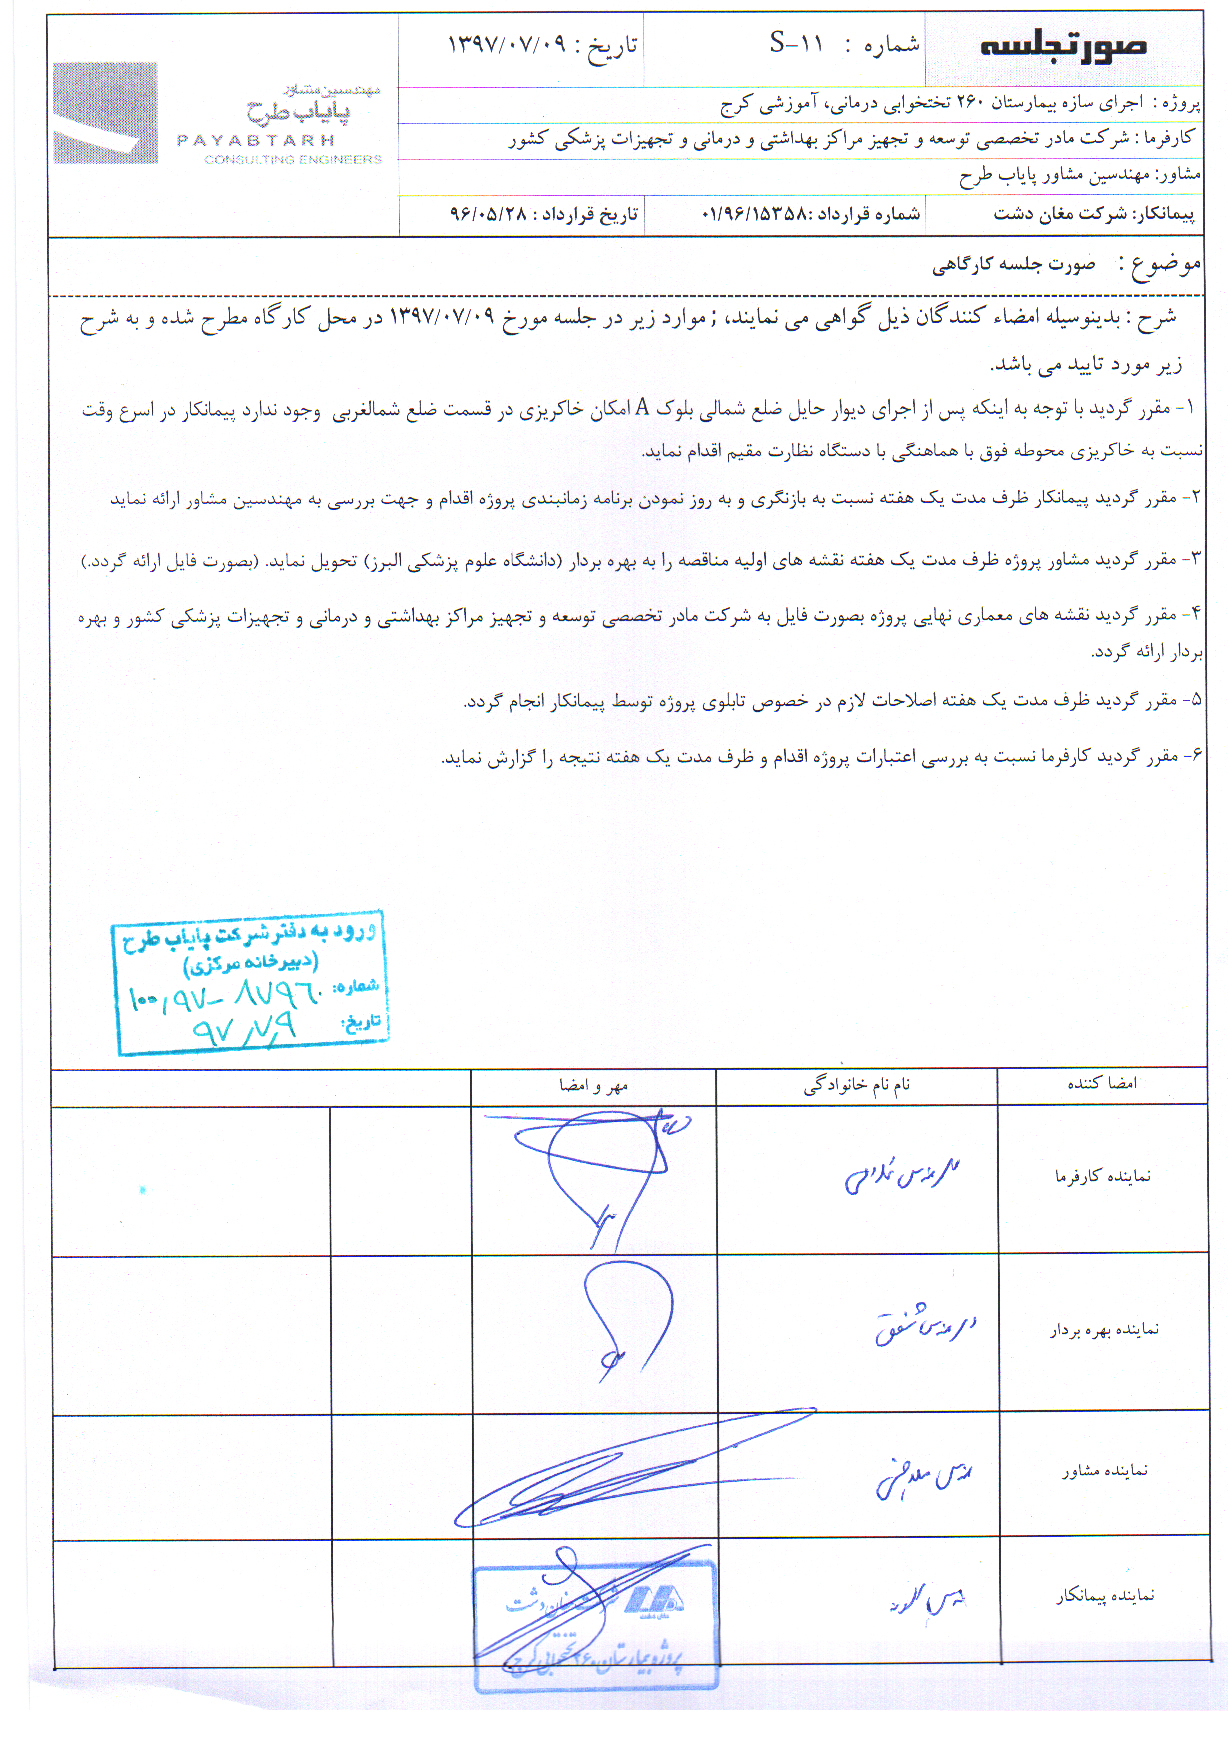 صورتجلسه
شماره : S-۱۱
تاریخ : ۱۳۹۷/۰۷/۰۹
مهندسین مشاور
پایاب طرح
PAYABTARH
CONSULTING ENGINEERS
پروژه : اجرای سازه بیمارستان ۲۶۰ تختخوابی درمانی، آموزشی کرج
کارفرما : شرکت مادر تخصصی توسعه و تجهیز مراکز بهداشتی و درمانی و تجهیزات پزشکی کشور
مشاور: مهندسین مشاور پایاب طرح
پیمانکار: شرکت مغان دشت
شماره قرارداد :۰۱/۹۶/۱۵۳۵۸
تاریخ قرارداد : ۹۶/۰۵/۲۸
موضوع : صورت جلسه کارگاهی
شرح : بدینوسیله امضاء کنندگان ذیل گواهی می نمایند، ; موارد زیر در جلسه مورخ ۱۳۹۷/۰۷/۰۹ در محل کارگاه مطرح شده و به شرح
زیر مورد تایید می باشد.
۱- مقرر گردید با توجه به اینکه پس از اجرای دیوار حایل ضلع شمالی بلوک A امکان خاکریزی در قسمت ضلع شمالغربی وجود ندارد پیمانکار در اسرع وقت
نسبت به خاکریزی محوطه فوق با هماهنگی با دستگاه نظارت مقیم اقدام نماید.
۲- مقرر گردید پیمانکار ظرف مدت یک هفته نسبت به بازنگری و به روز نمودن برنامه زمانبندی پروژه اقدام و جهت بررسی به مهندسین مشاور ارائه نماید
۳- مقرر گردید مشاور پروژه ظرف مدت یک هفته نقشه های اولیه مناقصه را به بهره بردار (دانشگاه علوم پزشکی البرز) تحویل نماید. (بصورت فایل ارائه گردد.)
۴- مقرر گردید نقشه های معماری نهایی پروژه بصورت فایل به شرکت مادر تخصصی توسعه و تجهیز مراکز بهداشتی و درمانی و تجهیزات پزشکی کشور و بهره
بردار ارائه گردد.
۵- مقرر گردید ظرف مدت یک هفته اصلاحات لازم در خصوص تابلوی پروژه توسط پیمانکار انجام گردد.
۶- مقرر گردید کارفرما نسبت به بررسی اعتبارات پروژه اقدام و ظرف مدت یک هفته نتیجه را گزارش نماید.
ورود به دفتر شرکت پایاب طرح
(دبیرخانه مرکزی)
شماره: ۱۰۰,۹۷-۸۷۹۶۰
تاریخ: ۹۷,۷,۹
امضا کننده
نام نام خانوادگی
مهر و امضا
نماینده کارفرما
مهندس
نماینده بهره بردار
مهندس شفق
نماینده مشاور
مهندس
نماینده پیمانکار
مهندس
شرکت مغان دشت
پروژه بیمارستان ۲۶۰ تختخوابی کرج